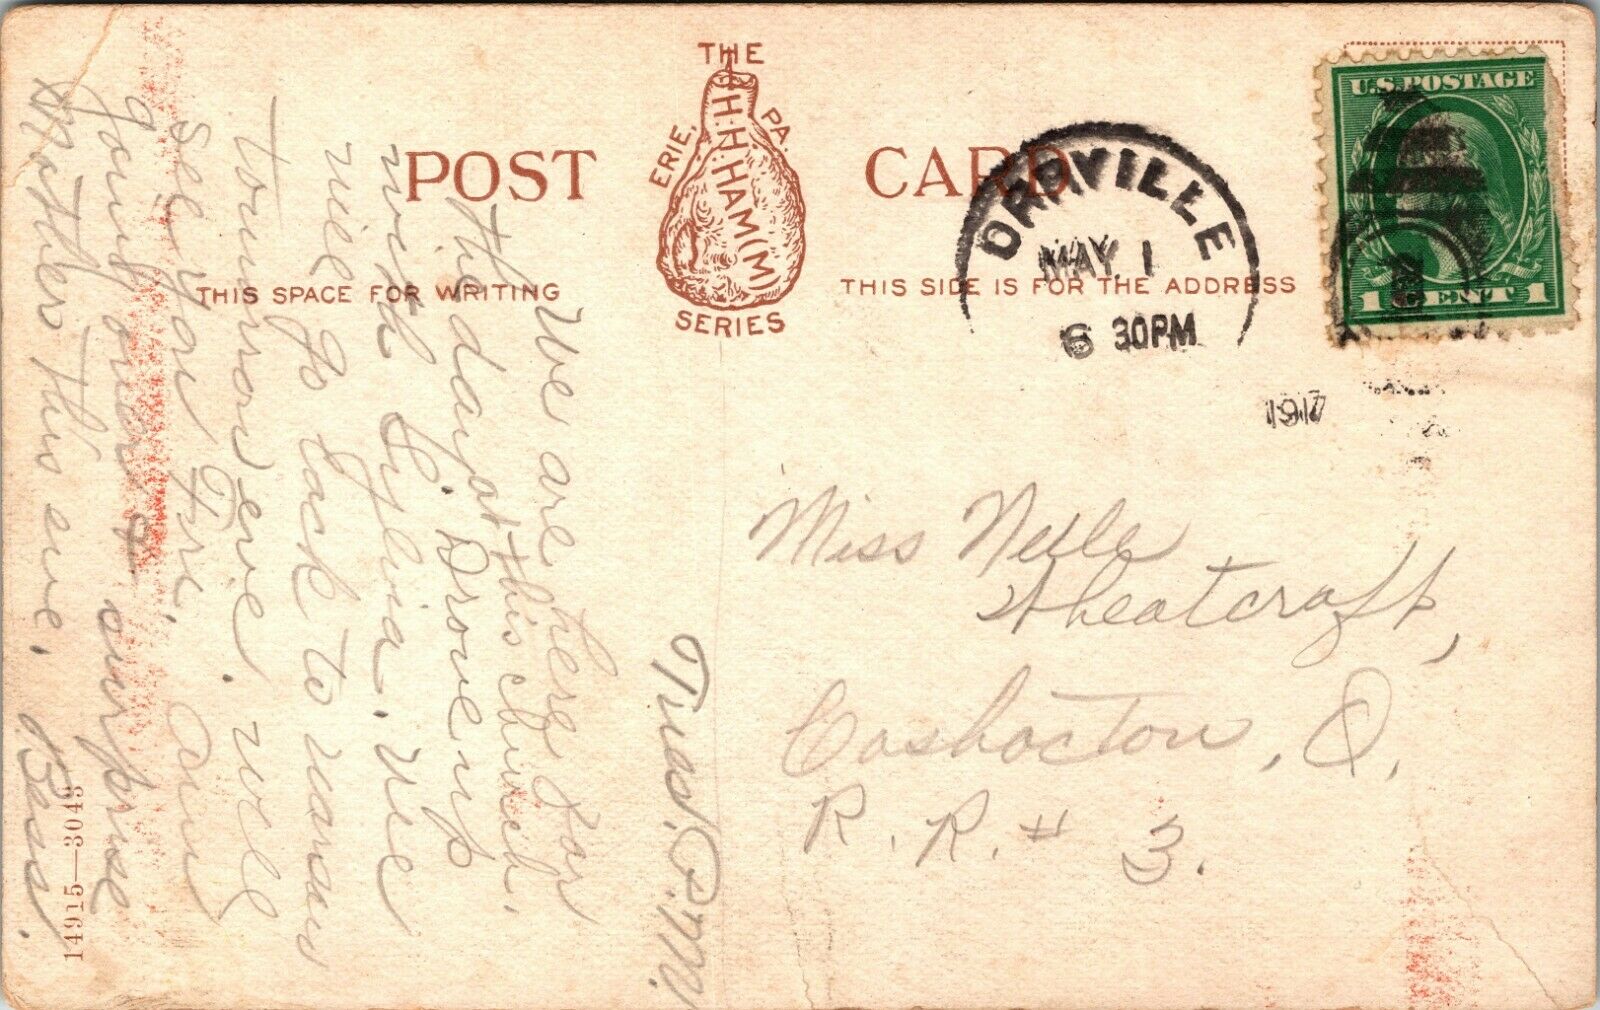 THE
H.H.HAM(M)
ERIE, PA.
SERIES
POST CARD
THIS SPACE FOR WRITING
THIS SIDE IS FOR THE ADDRESS
U.S.POSTAGE
1 CENT 1
ORRVILLE
MAY 1
6 30PM
1917
Tues. P.M.
We are here for
the day at this church.
with B. Drove up
Sylvia. We
will go back to
tomorrow eve. Will
see you Fri. am
going over & surprise
Mothers this eve. Bess.
Miss Nelle
Wheatcraft,
Coshocton, O.
R. R. # 3.
14915—3045